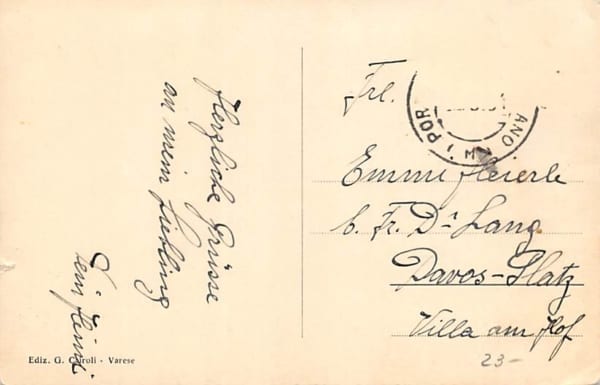 Herzliche Grüsse
an mein Liebling
Dein
Ediz. G. Cairoli - Varese
Frl.
Emmi Heierle
b. Fr. Dr Lang
Davos-Platz
Villa am Hof
23-